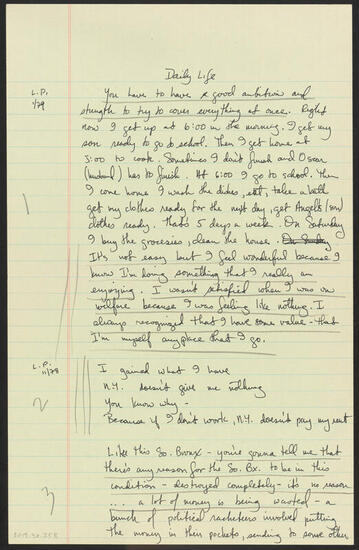 Daily Life
L.P.
1/79
You have to have a good ambition and
strength to try to cover everything at once. Right
now I get up at 6:00 in the morning. I get my
son ready to go to school. Then I get home at
3:00 to cook. Sometimes I don't finish and Oscar
(husband) has to finish. At 6:00 I go to school. Then
I come home I wash the dishes, eat, take a bath
get my clothes ready for the next day, get Angel's (son)
clothes ready. That's 5 days a week. On Saturday
1
I buy the groceries, clean the house. On Sunday
It's not easy but I feel wonderful because I
know I'm doing something that I really am
enjoying. I wasn't satisfied when I was on
welfare because I was feeling like nothing. I
always recognized that I have some value - that
I'm myself anyplace that I go.
L.P.
11/78
I gained what I have
N.Y. doesn't give me nothing
2
You know why -
Because if I don't work, N.Y. doesn't pay my rent
Like this So. Bronx - you're gonna tell me that
there's any reason for the So. Bx. to be in this
condition - destroyed completely - it's no reason
3
... a lot of money is being wasted - a
bunch of political racketeers involved putting
the money in their pockets, sending to some other